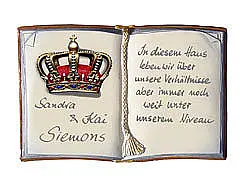 Sandra
& Kai
Siemons
In diesem Haus
leben wir über
unsere Verhältnisse
aber immer noch
weit unter
unserem Niveau